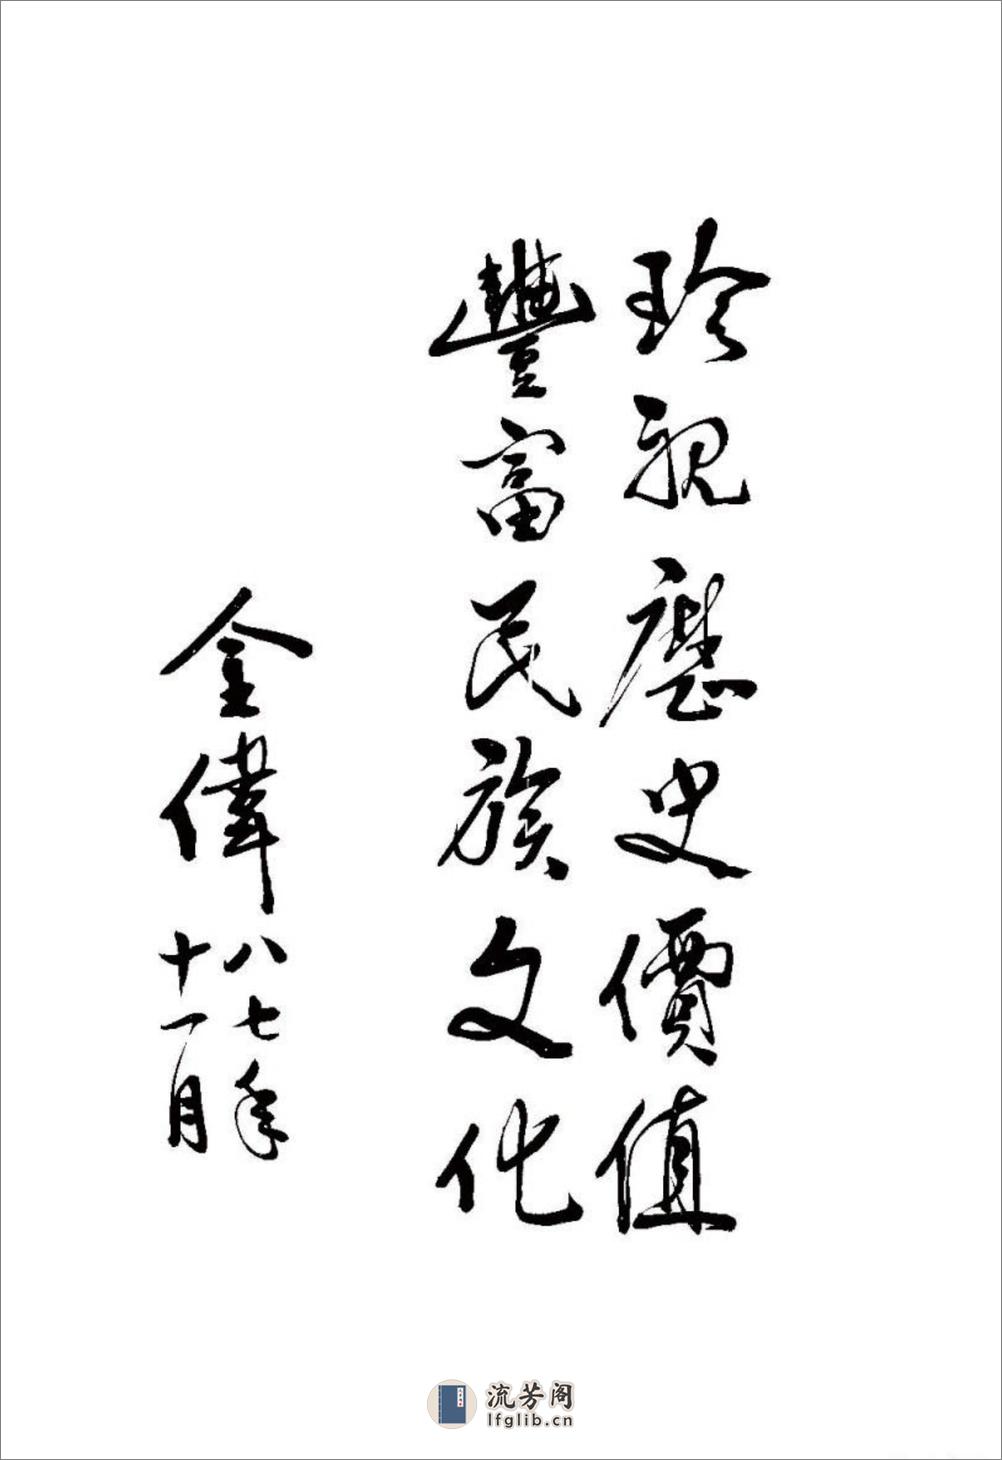 珍視歷史價值
豐富民族文化
金偉
八七年
十一月
流芳阁
lfglib.cn